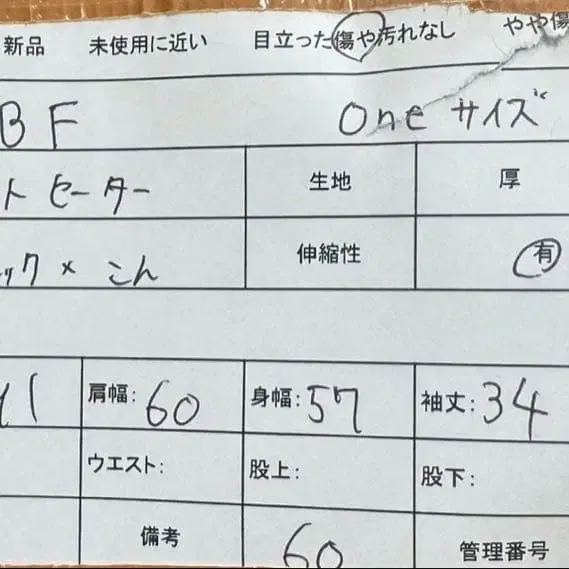 新品 未使用に近い 目立った傷や汚れなし やや傷
BF Oneサイズ
ト セーター 生地 厚
ック × こん 伸縮性 有
肩幅: 60 身幅: 57 袖丈: 34
ウエスト: 股上: 股下:
備考 60 管理番号